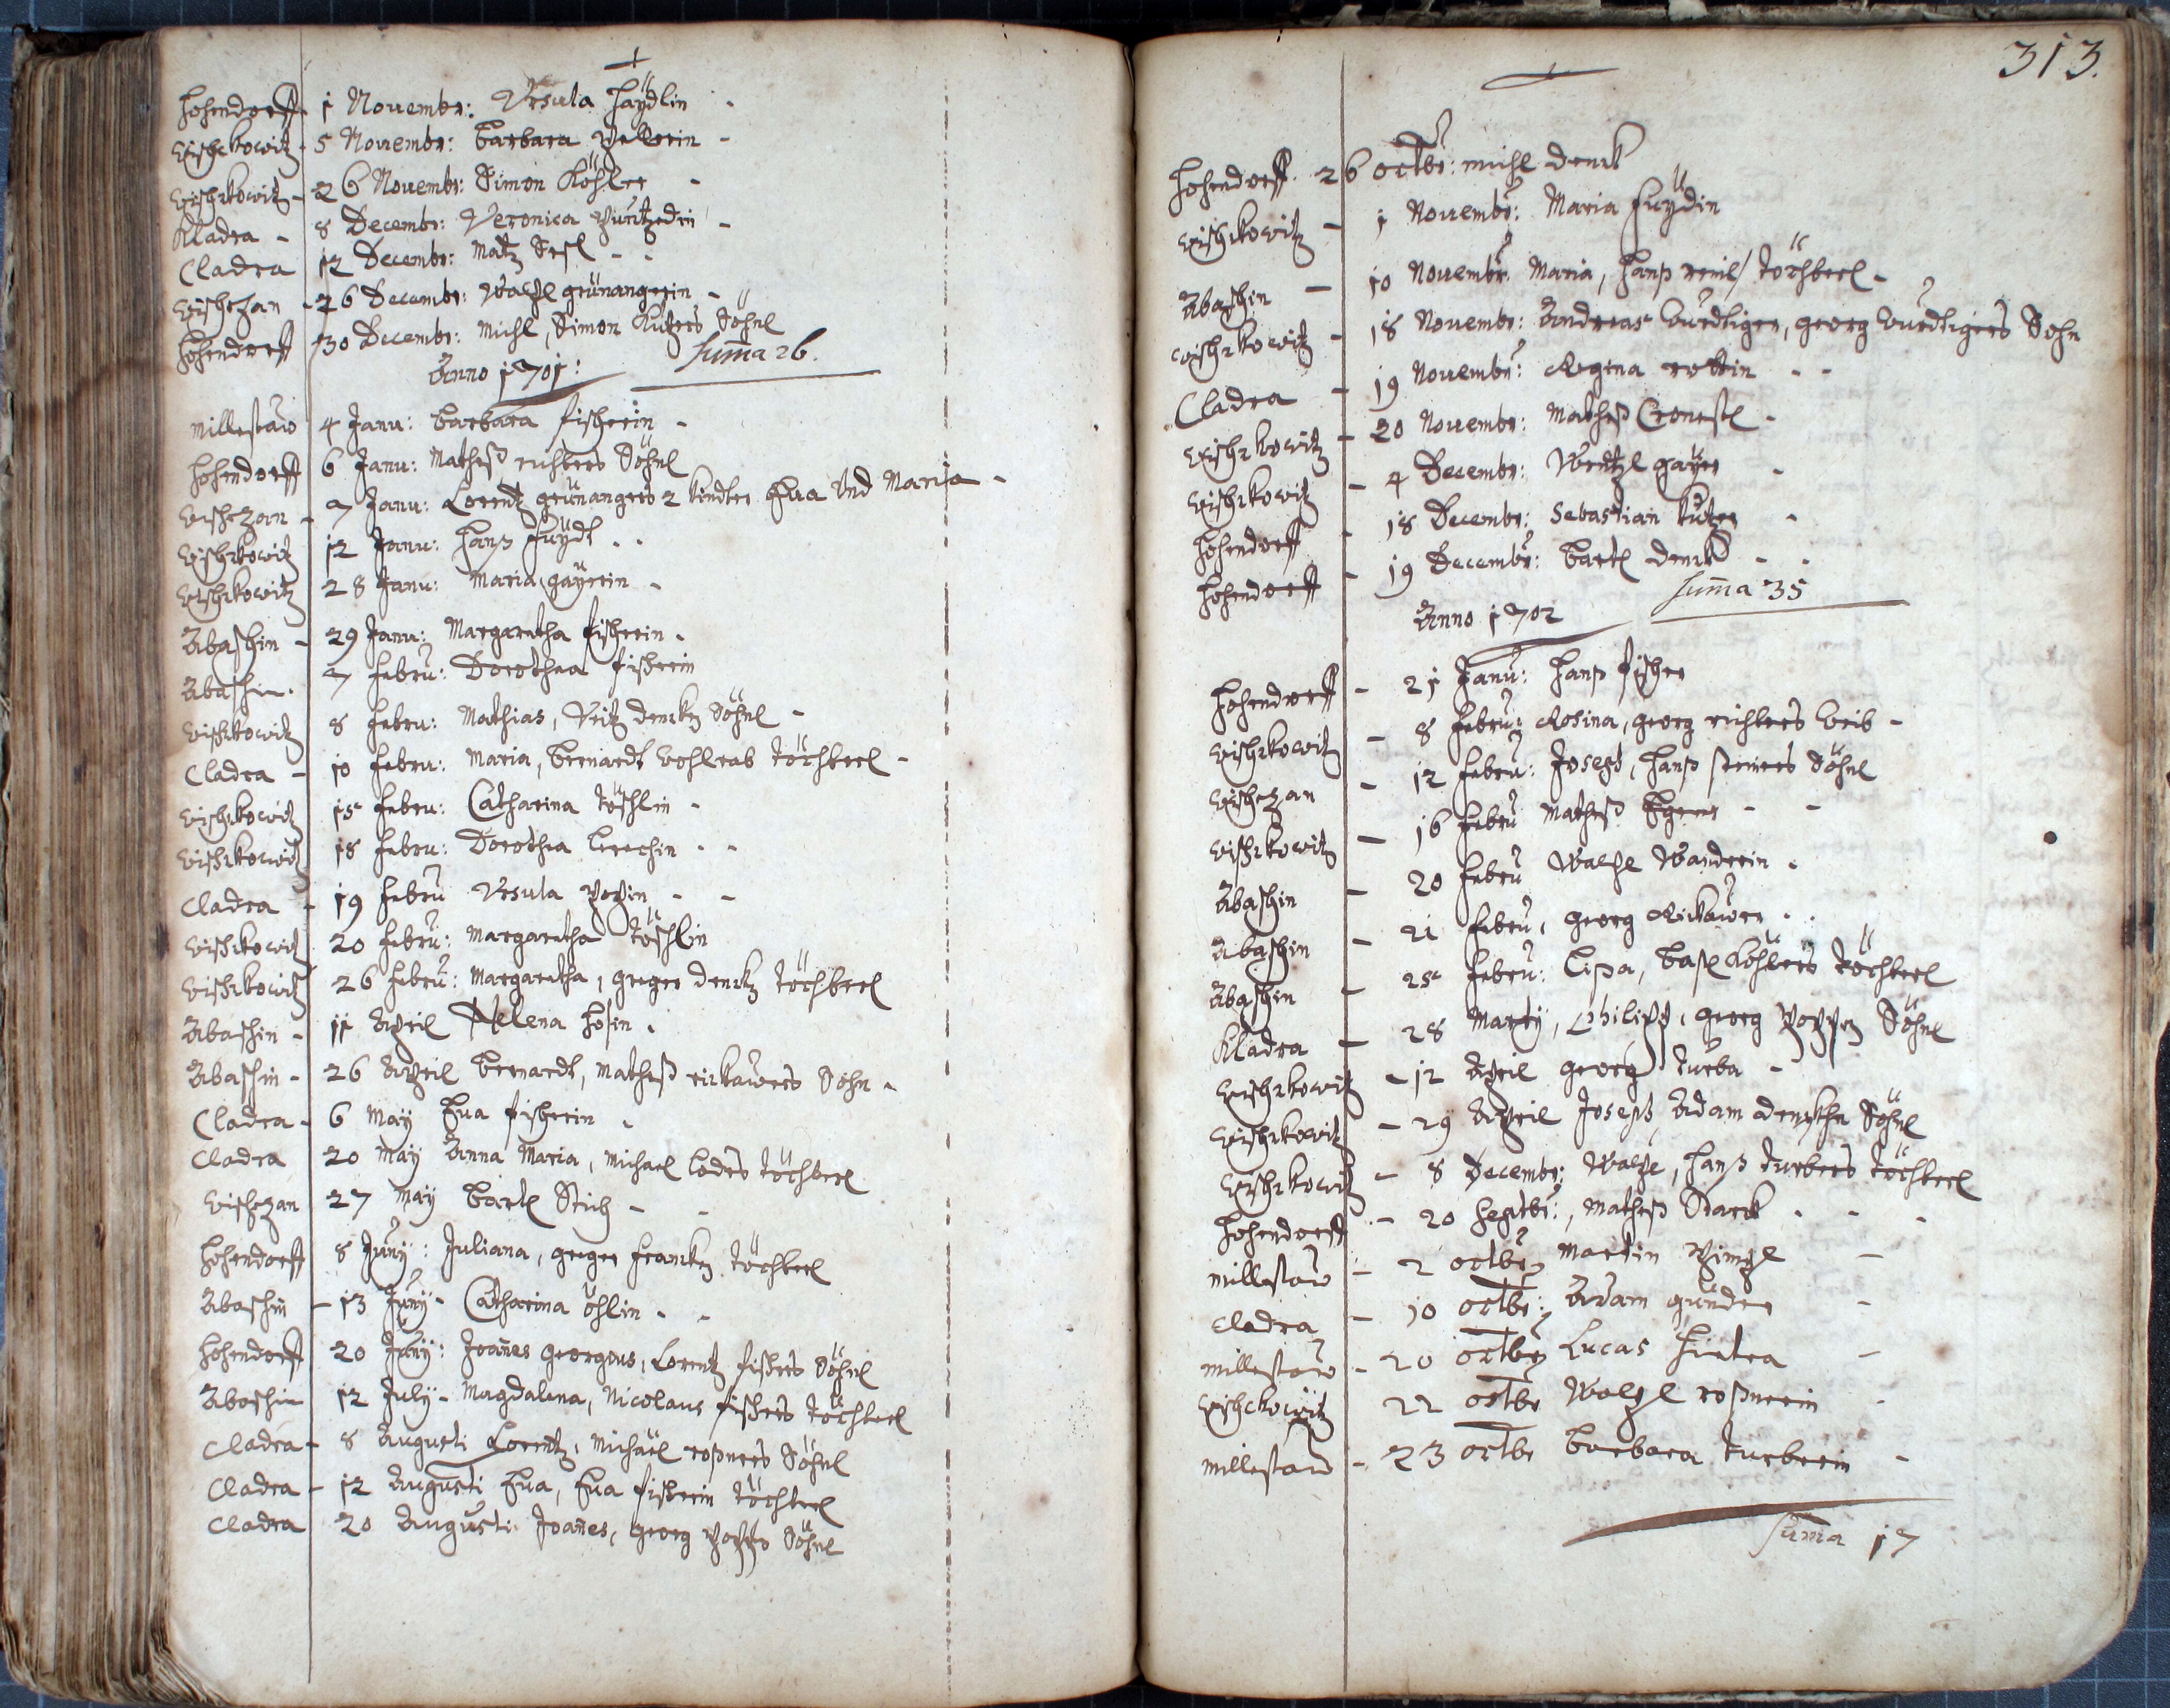 Hohendorff 1 Novembr: Ursula Haÿdlin
Wischkowitz 5 Novembr: Barbara
Wischkowitz 26 Novembr: Simon Köhler
Kladra 8 Decembr: Veronica
Cladra 12 Decembr: Matz
Wischezan 26 Decembr: Walpl grünangerin
Hohendorff 30 Decembr: Michl, Simon Kutzers Söhnl
Suma 26.
Anno 1701:
Millestaw 4 Janu: Barbara fischerin
Hohendorff 6 Janu: Matheß richters Söhnl
Wischezan 7 Janu: Lorentz grünangers 2 Kinder Eva Und Maria
Wischkowitz 12 Janu: Hanß Fuÿdt
Wischkowitz 28 Janu: Maria gaÿrin
Abaschin 29 Janu: Margaretha fischerin
Abaschin 7 Febru: Dorothea fischerin
Wischkowitz 8 Febru: Mathias, Veitz denckn Söhnl
Cladra 10 Febru: Maria, Bernardt Wohlrab töchterl
Wischkowitz 15 Febru: Catharina Töschlin
Wischkowitz 18 Febru: Dorothea Lerchin
Cladra 19 Febru Ursula popin
Wischkowitz 20 Febru: Margaretha Töschlin
Wischkowitz 26 Febru: Margaretha, greger denckn töchterl
Abaschin 11 April Helena
Abaschin 26 April Bernardt, Matheß rickawers Sohn
Cladra 6 May Eva fischerin
Cladra 20 May Anna Maria, Michael Loders töchterl
Wischezan 27 May Bartl Stich
Hohendorff 8 Junÿ: Juliana, greger francken töchterl
Abaschin 13 Junÿ Catharina öhlin
Hohendorff 20 Junÿ: Joanes Georgius, Lorentz fischers Söhnl
Abaschin 12 July Magdalena, Nicolaus fischers töchterl
Cladra 8 Augusti Lorentz, Michäel roßners Söhnl
Cladra 12 Augusti Eva, Eva fischerin töchterl
Cladra 20 Augusti Joanes, georg poppn Söhnl
313.
Hohendorff 26 octbr: Michl denck
Wischkowitz 1 Novembr: Maria Fuÿdin
Abaschin 10 Novembr: Maria, Hanß töchterl
Wischkowitz 18 Novembr: Andreas Wurdtiger, georg Wurdtigers Sohn
Cladra 19 Novembr: Regina rottin
Wischkowitz 20 Novembr: Matheß
Wischkowitz 4 Decembr: Wentzl gaÿer
Hohendorff 18 Decembr: Sebastian Kutzer
Hohendorff 19 Decembr: Bartl denck
Suma 35
Anno 1702
Hohendorff 21 Janu: Hanß fischer
Wischkowitz 8 Febru: Rosina, georg richters Weib
Wischezan 12 Febru: Joseph, Hanß Söhnl
Wischkowitz 16 Febru Matheß
Abaschin 20 Febru Walpl Wanderin
Abaschin 21 Febru, georg Rickawer
Abaschin 25 Febru: Lisa, Köhlers töchterl
Kladra 28 Marty, Philipp, georg poppn Söhnl
Wischkowitz 12 April georg Turba
Wischkowitz 29 April Joseph, Adam denckhn Söhnl
Wischkowitz 8 Decembr: Walpl, Hanß turbers töchterl
Hohendorff 20 Septbr:, Matheß Starck
Millestaw 2 octbr: Martin
Cladra 10 octbr: Adam günder
Millestaw 20 octbr Lucas
Wischkowitz 22 octbr Walpl roßnerin
Millestaw 23 octbr Barbara turberin
Suma 17